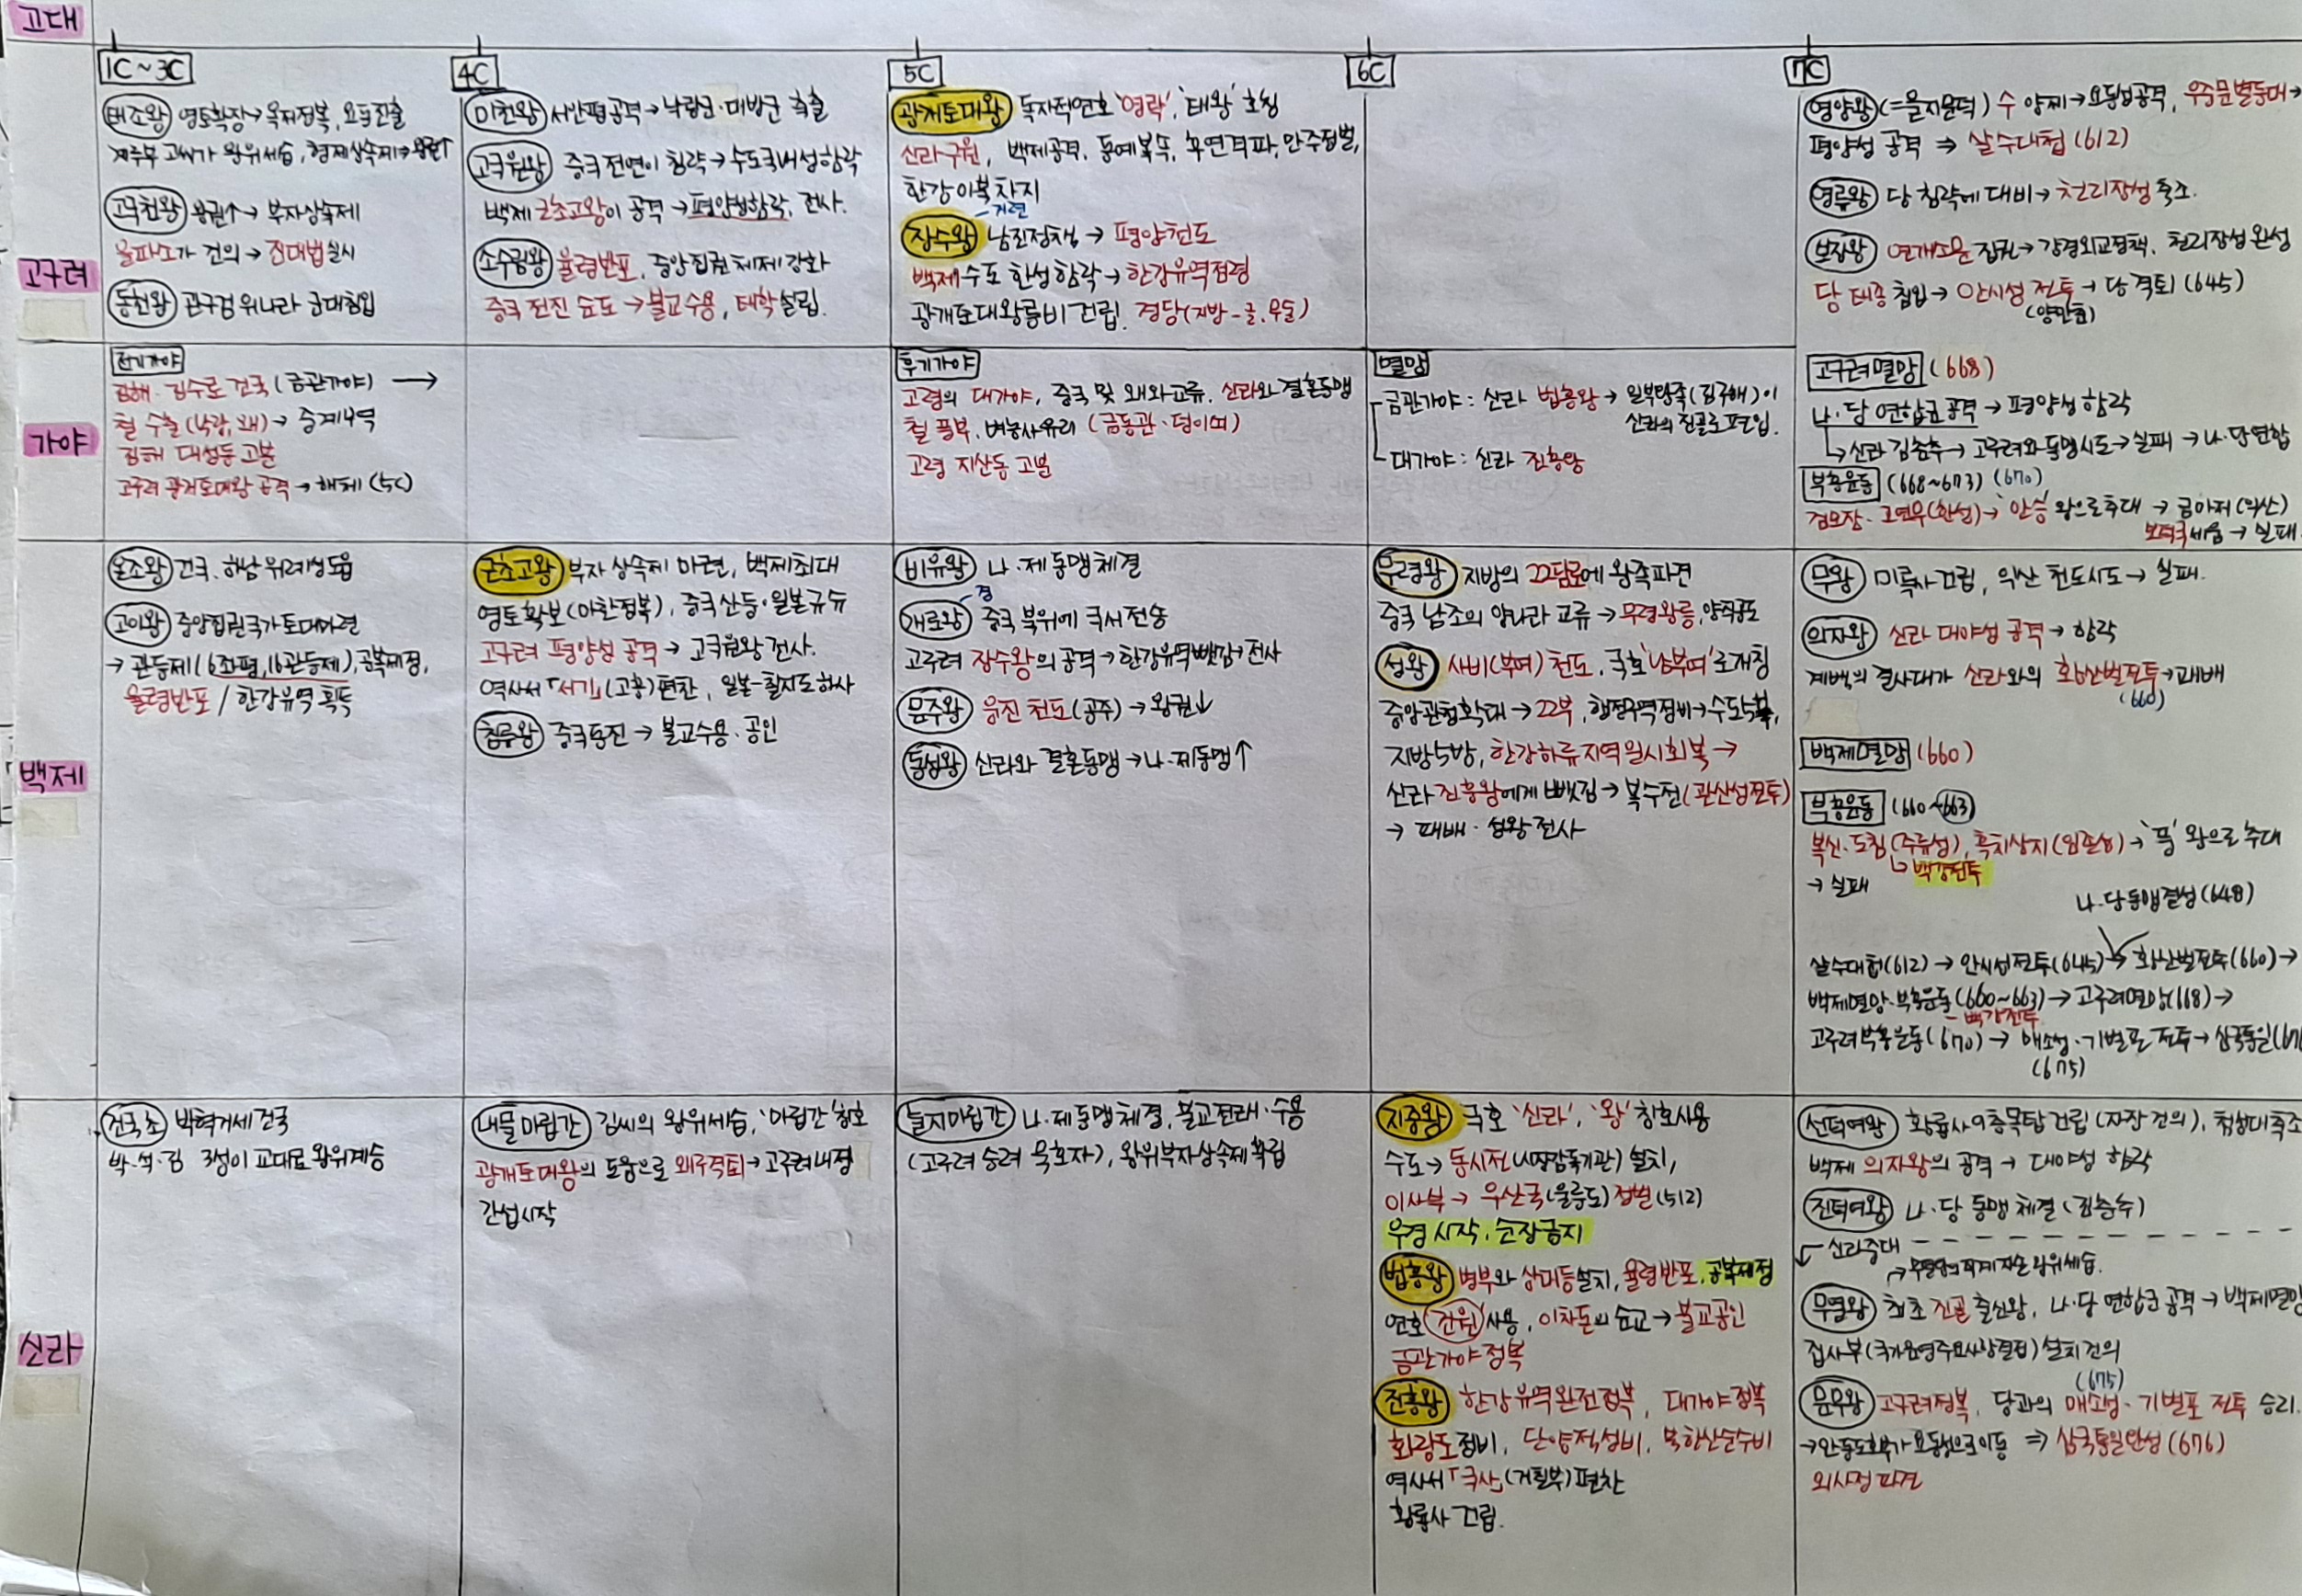 고대
1C~3C
4C
5C
6C
7C
고구려
태조왕 영토확장→옥저정복, 요동진출
계루부 고씨가 왕위세습, 형제상속제→왕권↑
고국천왕 왕권↑→ 부자상속제
을파소가 건의→진대법실시
동천왕 관구검 위나라 군대침입
미천왕 서안평공격→낙랑군·대방군 축출
고국원왕 중국 전연이 침략→수도국내성함락
백제 근초고왕이 공격→평양성함락, 전사.
소수림왕 율령반포, 중앙집권체제강화
중국 전진 순도→불교수용, 태학설립.
광개토대왕 독자적연호 '영락', '태왕' 호칭
신라구원, 백제공격, 동예복속, 후연격파, 만주정벌,
한강이북차지
-거련
장수왕 남진정책→ 평양천도
백제수도 한성함락→한강유역점령
광개토대왕릉비건립. 경당(지방-글,무술)
영양왕(=을지문덕) 수 양제→요동성공격, 우중문별동대→
평양성 공격 ⇒ 살수대첩(612)
영류왕 당 침략에 대비→천리장성축조.
보장왕 연개소문 집권→강경외교정책, 천리장성완성
당 태종침입→안시성 전투→당격퇴(645)
(양만춘)
고구려멸망 (668)
나·당 연합군공격→평양성함락
↳신라 김춘추→고구려와동맹시도→실패→나·당연합
부흥운동 (668~673) (670)
검모잠·고연무(한성)→'안승'왕으로추대→금마저(익산)
보덕국세움→실패.
가야
전기가야
김해·김수로건국(금관가야) →
철 수출(낙랑,왜)→중계무역
김해 대성동고분
고구려 광개토대왕 공격→해체(5C)
후기가야
고령의 대가야, 중국 및 왜와교류, 신라와결혼동맹
철 풍부, 벼농사유리 (금동관·덩이쇠)
고령 지산동 고분
멸망
금관가야: 신라 법흥왕→일부왕족(김구해)이
신라의 진골로편입.
대가야: 신라 진흥왕
백제
온조왕 건국. 하남위례성도읍
고이왕 중앙집권국가토대마련
→관등제(6좌평,16관등제), 공복제정,
율령반포 / 한강유역획득
근초고왕 부자상속제 마련, 백제최대
영토확보(마한정복), 중국산둥·일본규슈
고구려 평양성 공격→고국원왕전사.
역사서「서기」(고흥)편찬, 일본-칠지도하사
침류왕 중국동진→불교수용·공인
비유왕 나·제동맹체결
-경
개로왕 중국 북위에 국서전송
고구려 장수왕의 공격→한강유역뺏김→전사
문주왕 웅진 천도(공주)→왕권↓
동성왕 신라와 결혼동맹→나·제동맹↑
무령왕 지방의 22담로에 왕족파견
중국 남조의 양나라 교류→무령왕릉, 양직공도
성왕 사비(부여) 천도, 국호'남부여'로개칭
중앙관청확대→22부, 행정구역정비→수도5부,
지방5방, 한강하류지역일시회복→
신라 진흥왕에게 뺏김→복수전(관산성전투)
→ 패배·성왕전사
무왕 미륵사건립, 익산 천도시도→실패.
의자왕 신라 대야성 공격→함락
계백의 결사대가 신라와의 황산벌전투→패배
(660)
백제멸망 (660)
부흥운동 (660~663)
복신·도침(주류성), 흑치상지(임존성)→'풍'왕으로추대
↳백강전투
→실패
나·당동맹결성(648)
살수대첩(612)→안시성전투(645)→황산벌전투(660)→
백제멸망·부흥운동(660~663)→고구려멸망(668)→
-백강전투
고구려부흥운동(670)→매소성·기벌포 전투→삼국통일(676
(675)
신라
건국초 박혁거세건국
박·석·김 3성이 교대로왕위계승
내물마립간 김씨의 왕위세습, '마립간'칭호
광개토대왕의 도움으로 왜구격퇴→고구려내정
간섭시작
눌지마립간 나·제동맹체결, 불교전래·수용
(고구려 승려 묵호자), 왕위부자상속제확립
지증왕 국호 '신라', '왕' 칭호사용
수도→동시전(시장감독기관) 설치,
이사부→ 우산국(울릉도)정벌(512)
우경시작, 순장금지
법흥왕 병부와 상대등설치, 율령반포, 공복제정
연호 건원 사용, 이차돈의 순교→불교공인
금관가야정복
진흥왕 한강유역완전정복, 대가야정복
화랑도정비, 단양적성비, 북한산순수비
역사서「국사」(거칠부)편찬
황룡사 건립.
선덕여왕 황룡사9층목탑건립(자장건의), 첨성대축조
백제 의자왕의 공격→ 대야성 함락
진덕여왕 나·당 동맹체결(김춘추)
신라중대
→무열왕의직계자손왕위세습.
무열왕 최초 진골출신왕, 나·당연합군공격→백제멸망
집사부(국가운영주요사항결정)설치건의
(675)
문무왕 고구려정복, 당과의 매소성·기벌포 전투 승리.
→안동도호부가요동성으로이동 ⇒ 삼국통일완성(676)
외사정파견